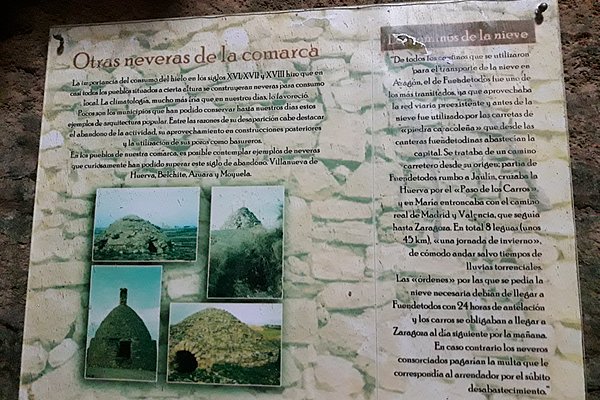 Otras neveras de la comarca
La importancia del consumo del hielo en los siglos XVI, XVII y XVIII hizo que en
casi todos los pueblos situados a cierta altura se construyeran neveras para consumo
local. La climatología, mucho más fría que en nuestros días, lo favoreció.
Pocos son los municipios que han podido conservar hasta nuestros días estos
ejemplos de arquitectura popular. Entre las razones de su desaparición cabe destacar
el abandono de la actividad, su aprovechamiento en construcciones posteriores
y la utilización de sus pozos como basureros.
En los pueblos de nuestra comarca, es posible contemplar ejemplos de neveras
que curiosamente han podido superar este siglo de abandono. Villanueva de
Huerva, Belchite, Azuara y Moyuela.
caminos de la nieve
"De todos los caminos que se utilizaron
para el transporte de la nieve en
Aragón, el de Fuendetodos fue uno de
los más transitados, ya que aprovechaba
la red viaria preexistente y antes de la
nieve fue utilizado por las carretas de
«piedra caracoleña» que desde las
canteras fuendetodinas abastecían la
capital. Se trataba de un camino
carretero desde su origen; partía de
Fuendetodos rumbo a Jaulín, cruzaba la
Huerva por el «Paso de los Carros»,
y en María entroncaba con el camino
real de Madrid y Valencia, que seguía
hasta Zaragoza. En total 8 leguas (unos
45 km), «una jornada de invierno»,
de cómodo andar salvo tiempos de
lluvias torrenciales.
Las «órdenes» por las que se pedía la
nieve necesaria debían de llegar a
Fuendetodos con 24 horas de antelación
y los carros se obligaban a llegar a
Zaragoza al día siguiente por la mañana.
En caso contrario los neveros
consorciados pagarían la multa que le
correspondía al arrendador por el súbito
desabastecimiento."